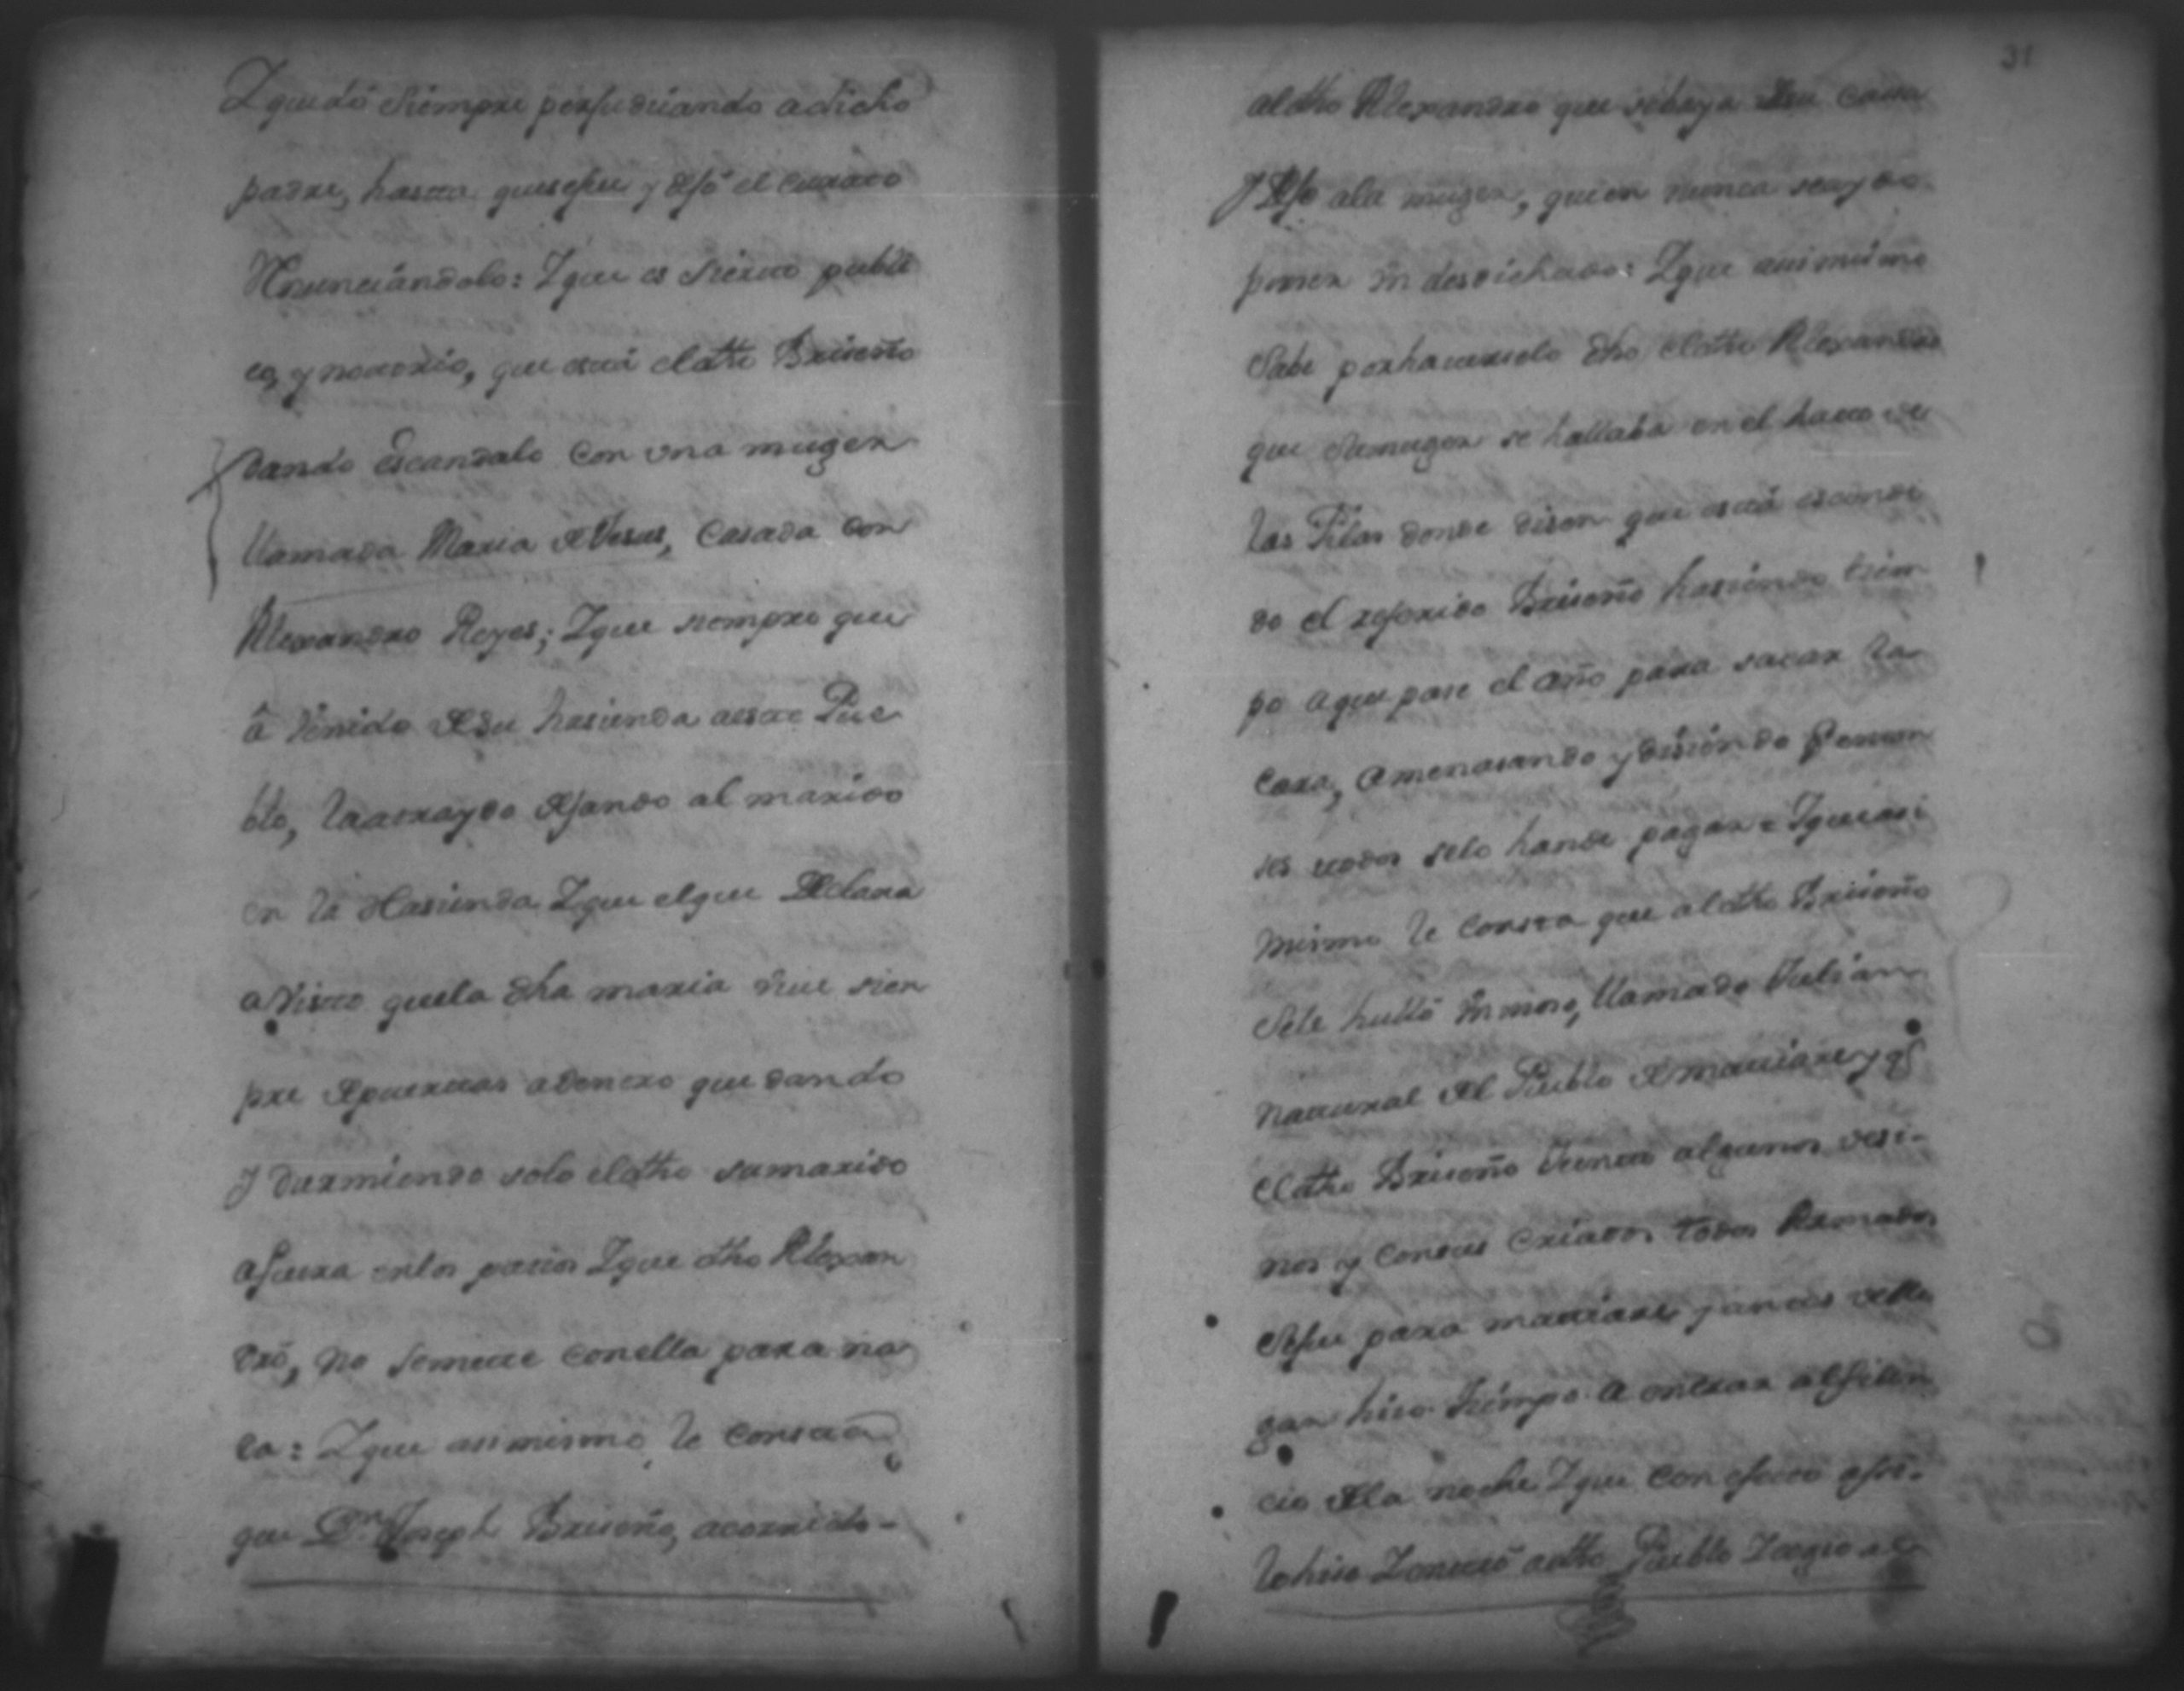 Y quedó siempre perjudiciando a dicho
padre, hasta que se fue y dejó el curato
renunciándolo: Y que es sierto publi
co, y notorio, que está el dho Briseño
dando escandalo con una muger
llamada Maria de Jesus, casada con
Alexandro Reyes; Y que siempre que
â venido de su hasienda a este Pue
blo, la a traydo dejando al marido
en la Hasienda Y que el que declara
a visto que la dha maria vive siem
pre de puertas a dentro quedando
y durmiendo solo el dho su marido
afuera en los patios Y que dho Alexan
dro, no se mete con ella para na
da: Y que asi mismo le consta
que Dn. Joseph Brisеño, a corrido-
31
al dho Alexandro que se baya de su casa
y deje a la muger, quien nunca se ayda
poner un desdichado: Y que asi mismo
Sabe por haverselo dho el dho Alexandro
que su muger se hallaba en el hato de
las Pilas donde disen que está escondi
do el referido Briseño hasiendo tiem
po a que pase el año para sacar la
cara, amenasando y disiendo
todos se lo han de pagar = Y que asi
mismo le consta que al dho Briseño
Se le huió un moso, llamado Julian
natural del Pueblo de matiare, y qe
el dho Briseño Juntó algunos vesi-
nos y con sus criados todos Armados
Se fue para matiare, y antes de lle
gar hiso tiempo a entrar al silen
cio de la noche Y que con efecto
lo hiso Y entró a dho Pueblo